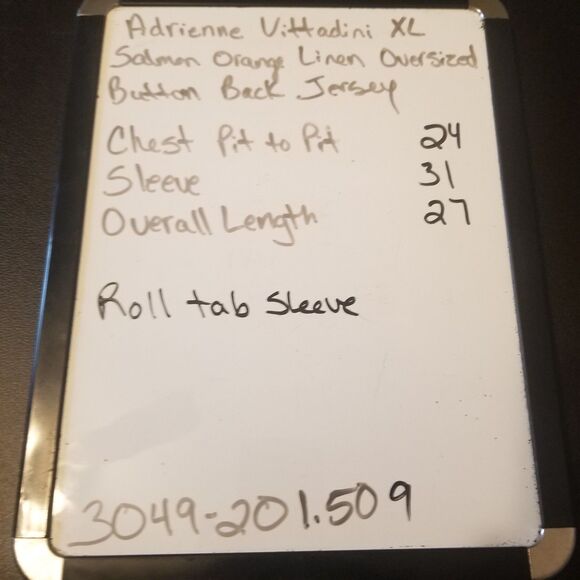 Adrienne Vittadini XL
Salmon Orange Linen Oversized
Button Back Jersey
Chest Pit to Pit 24
Sleeve 31
Overall Length 27
Roll tab Sleeve
3049-201.509